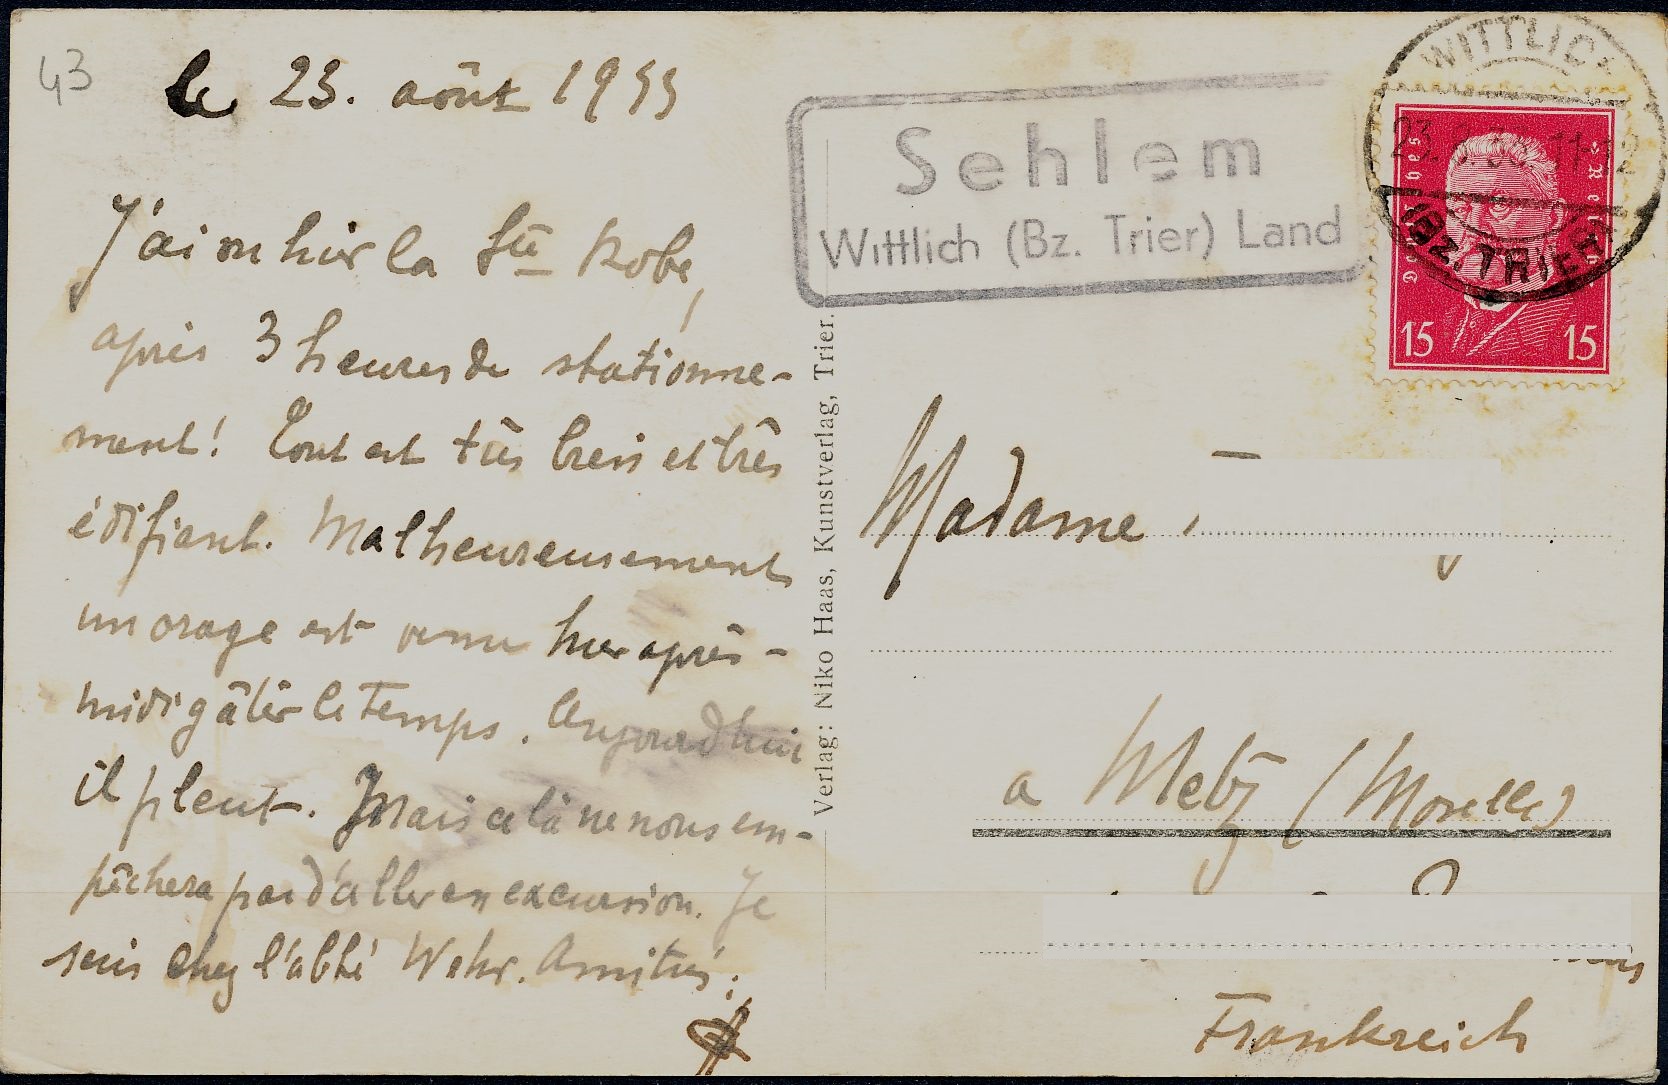 43
le 23. août 1933
J'ai vu hier la Ste Robe,
après 3 heures de stationne-
ment! Tout est très bien et très
édifiant. Malheureusement
un orage est venu hier après-
midi gâter le temps. Aujourd'hui
il pleut. Mais cela ne nous em-
pêchera pas d'aller en excursion. Je
suis chez l'abbé Wehr. Amitiés.
Verlag: Niko Haas, Kunstverlag, Trier.
Sehlem
Wittlich (Bz. Trier) Land
WITTLICH
23. 11-12
(BZ. TRIER)
Deutsches Reich
15 15
Madame
a Metz (Moselle)
Frankreich